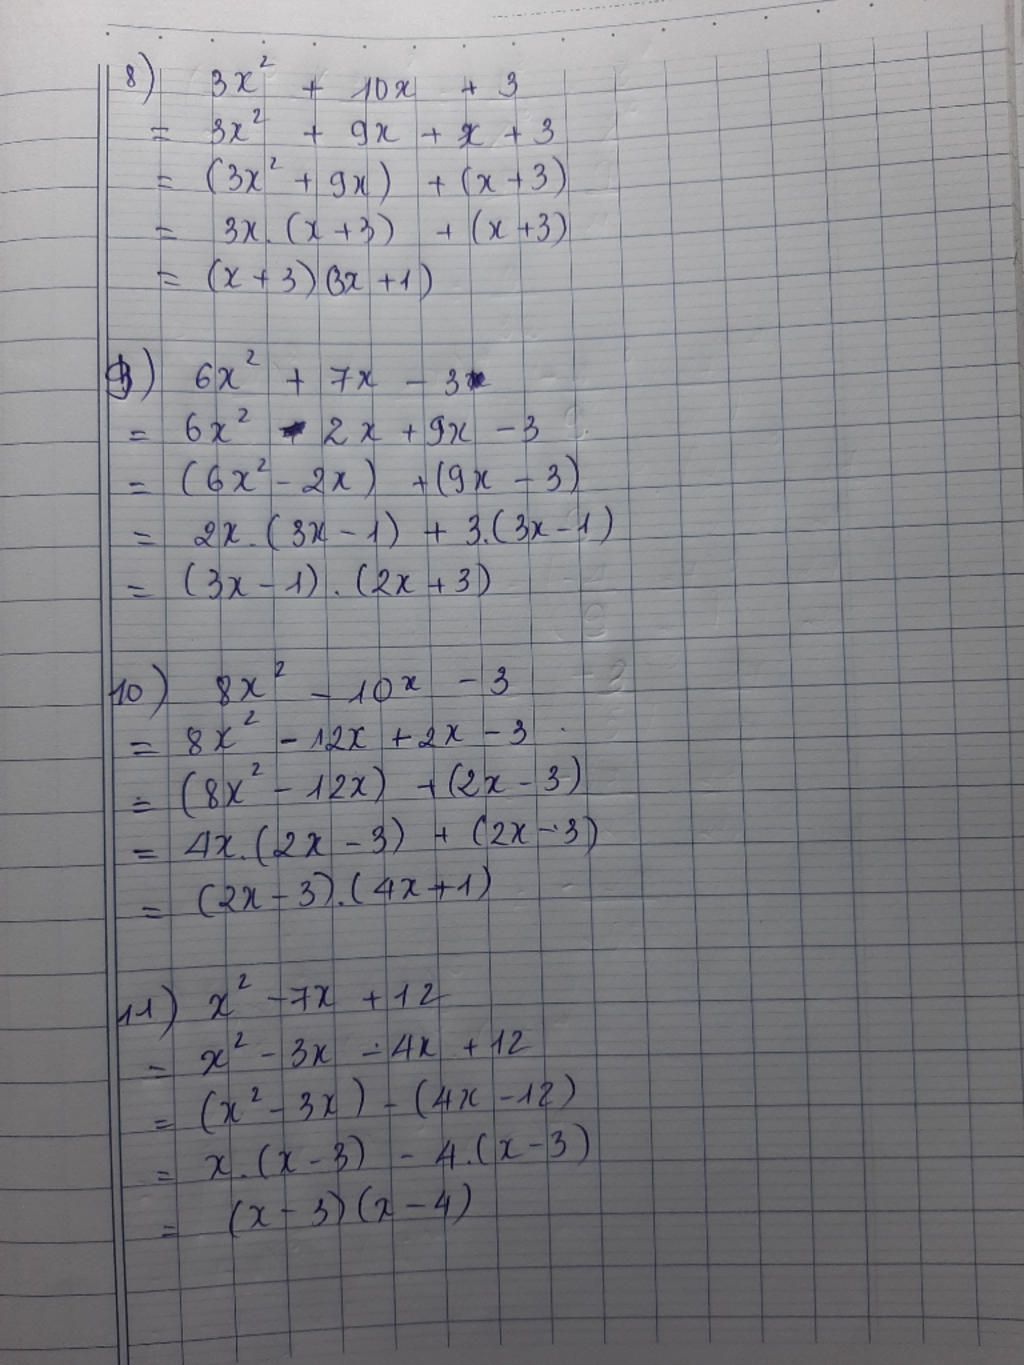 8) 3x² + 10x + 3
= 3x² + 9x + x + 3
= (3x² + 9x) + (x + 3)
= 3x.(x + 3) + (x + 3)
= (x + 3)(3x + 1)
9) 6x² + 7x - 3
= 6x² - 2x + 9x - 3
= (6x² - 2x) + (9x - 3)
= 2x.(3x - 1) + 3.(3x - 1)
= (3x - 1).(2x + 3)
10) 8x² - 10x - 3
= 8x² - 12x + 2x - 3
= (8x² - 12x) + (2x - 3)
= 4x.(2x - 3) + (2x - 3)
= (2x - 3).(4x + 1)
11) x² - 7x + 12
= x² - 3x - 4x + 12
= (x² - 3x) - (4x - 12)
= x.(x - 3) - 4.(x - 3)
= (x - 3)(x - 4)